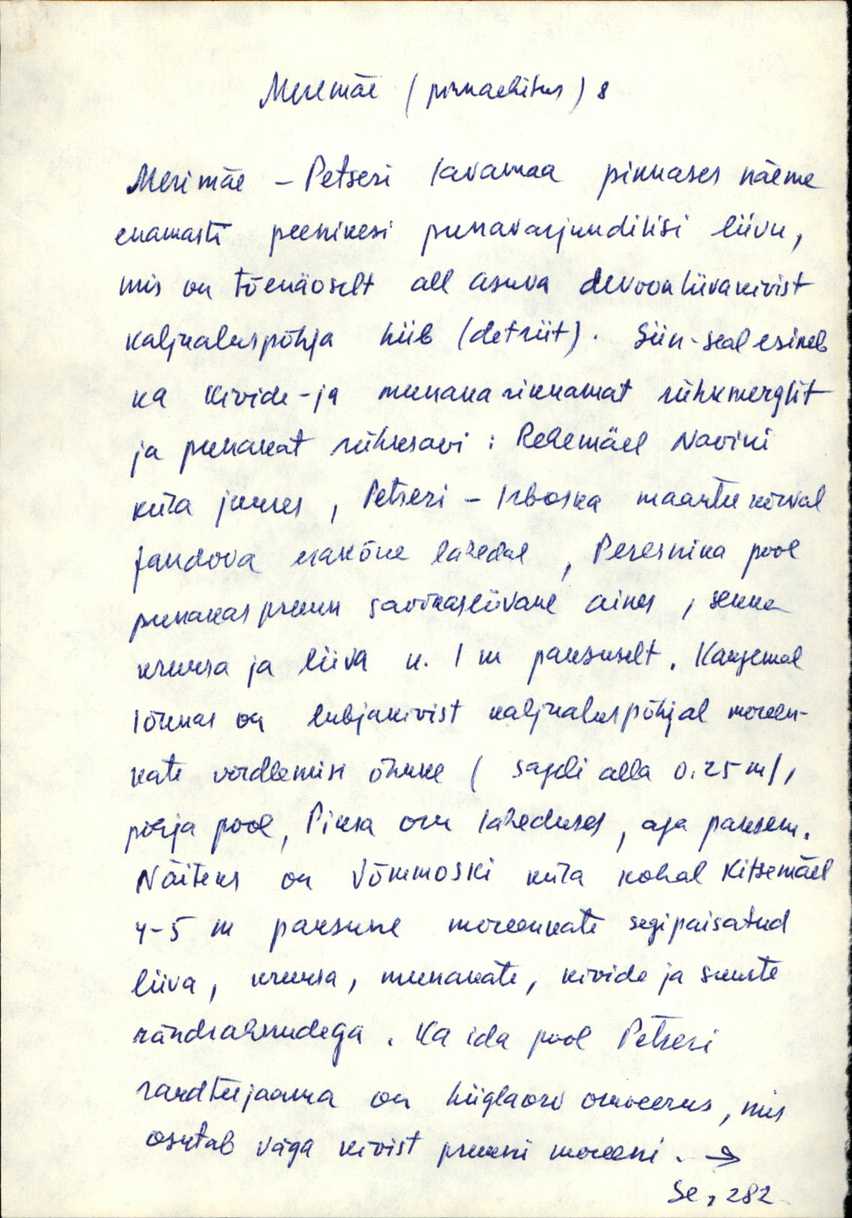 Meremäe (pinnaehitus) 8
Merimäe – Petseri lavamaa pinnases näeme
enamasti peenikesi punavarjundilisi liivu,
mis on tõenäoselt all asuva devoonliivakivist
kaljualuspõhja hiib (detriit). Siin-seal esineb
ka kivide- ja munakarikkamat rühkmerglit
ja punakat rühksavi: Rebemäel Navini
küla juures, Petseri – Irboska maantee kõrval
Jandova lähedal, Peresnika pool
punakaspruun savikasliivane aines, sekka
kruusa ja liiva u. 1 m paksuselt. Kaugemal
lõunas on lubjakivist kaljualuspõhjal moreen-
kate võrdlemisi õhuke (sageli alla 0.25 m),
põhja pool, Piusa oru läheduses, aga paksem.
Näiteks on Võmmoski küla kohal Kitsemäel
4-5 m paksune moreenkate segipaisatud
liiva, kruusa, munakate, kivide ja suurte
rändrahnudega. Ka ida pool Petseri
raudteejaama on hiiglaorv, mis
osutab väga kivist pruuni moreeni. →
Se, 282